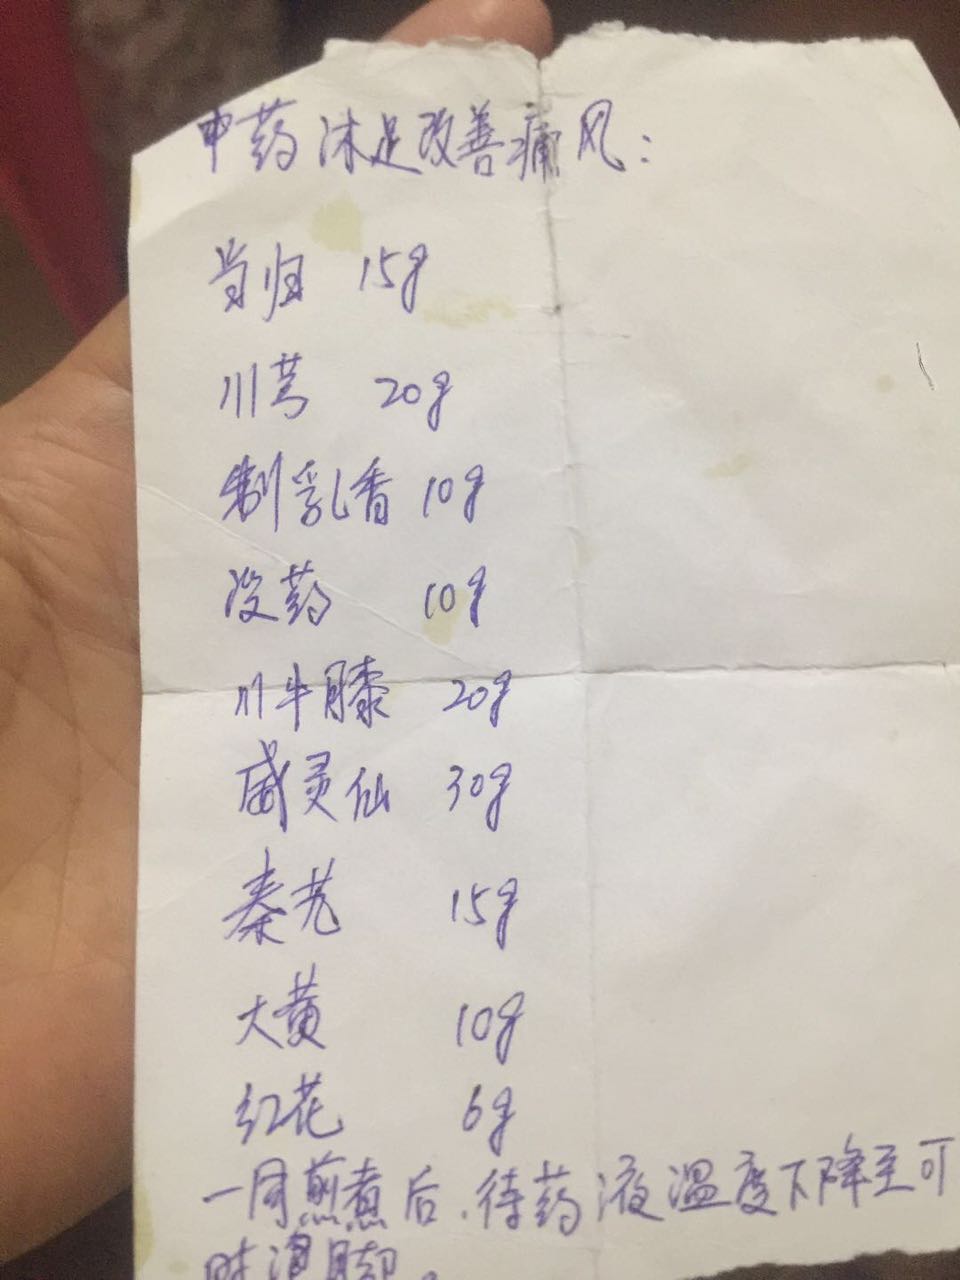 中药沐足改善痛风：
当归 15g
川芎 20g
制乳香 10g
没药 10g
川牛膝 20g
威灵仙 30g
秦艽 15g
大黄 10g
红花 6g
一同煎煮后，待药液温度下降至可
时浸脚。